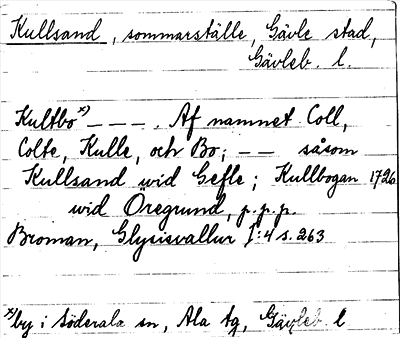 Kullsand, sommarställe, Gävle stad,
Gävleb. l.
Kultbo x) – – – . Af namnet Coll,
Colte, Kulle, och Bo; – – såsom
Kullsand wid Gefle; Kullbogan 1726
wid Öregrund, p.p.p.
Broman, Glysisvallur I:4 s. 263
x) by i Söderala sn, Ala tg, Gävleb. l